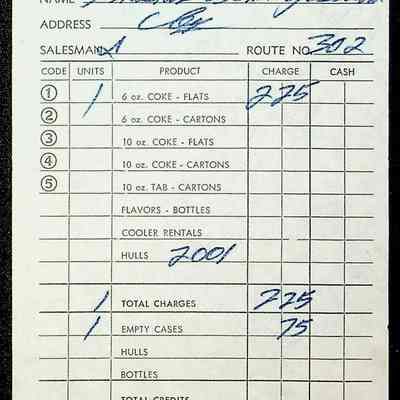 NAME
ADDRESS City
SALESMAN 1 ROUTE NO. 302
CODE UNITS PRODUCT CHARGE CASH
1 1 6 oz. COKE - FLATS 225
2 6 oz. COKE - CARTONS
3 10 oz. COKE - FLATS
4 10 oz. COKE - CARTONS
5 10 oz. TAB - CARTONS
FLAVORS - BOTTLES
COOLER RENTALS
HULLS 2001
1 TOTAL CHARGES 225
1 EMPTY CASES 75
HULLS
BOTTLES
TOTAL CREDITS